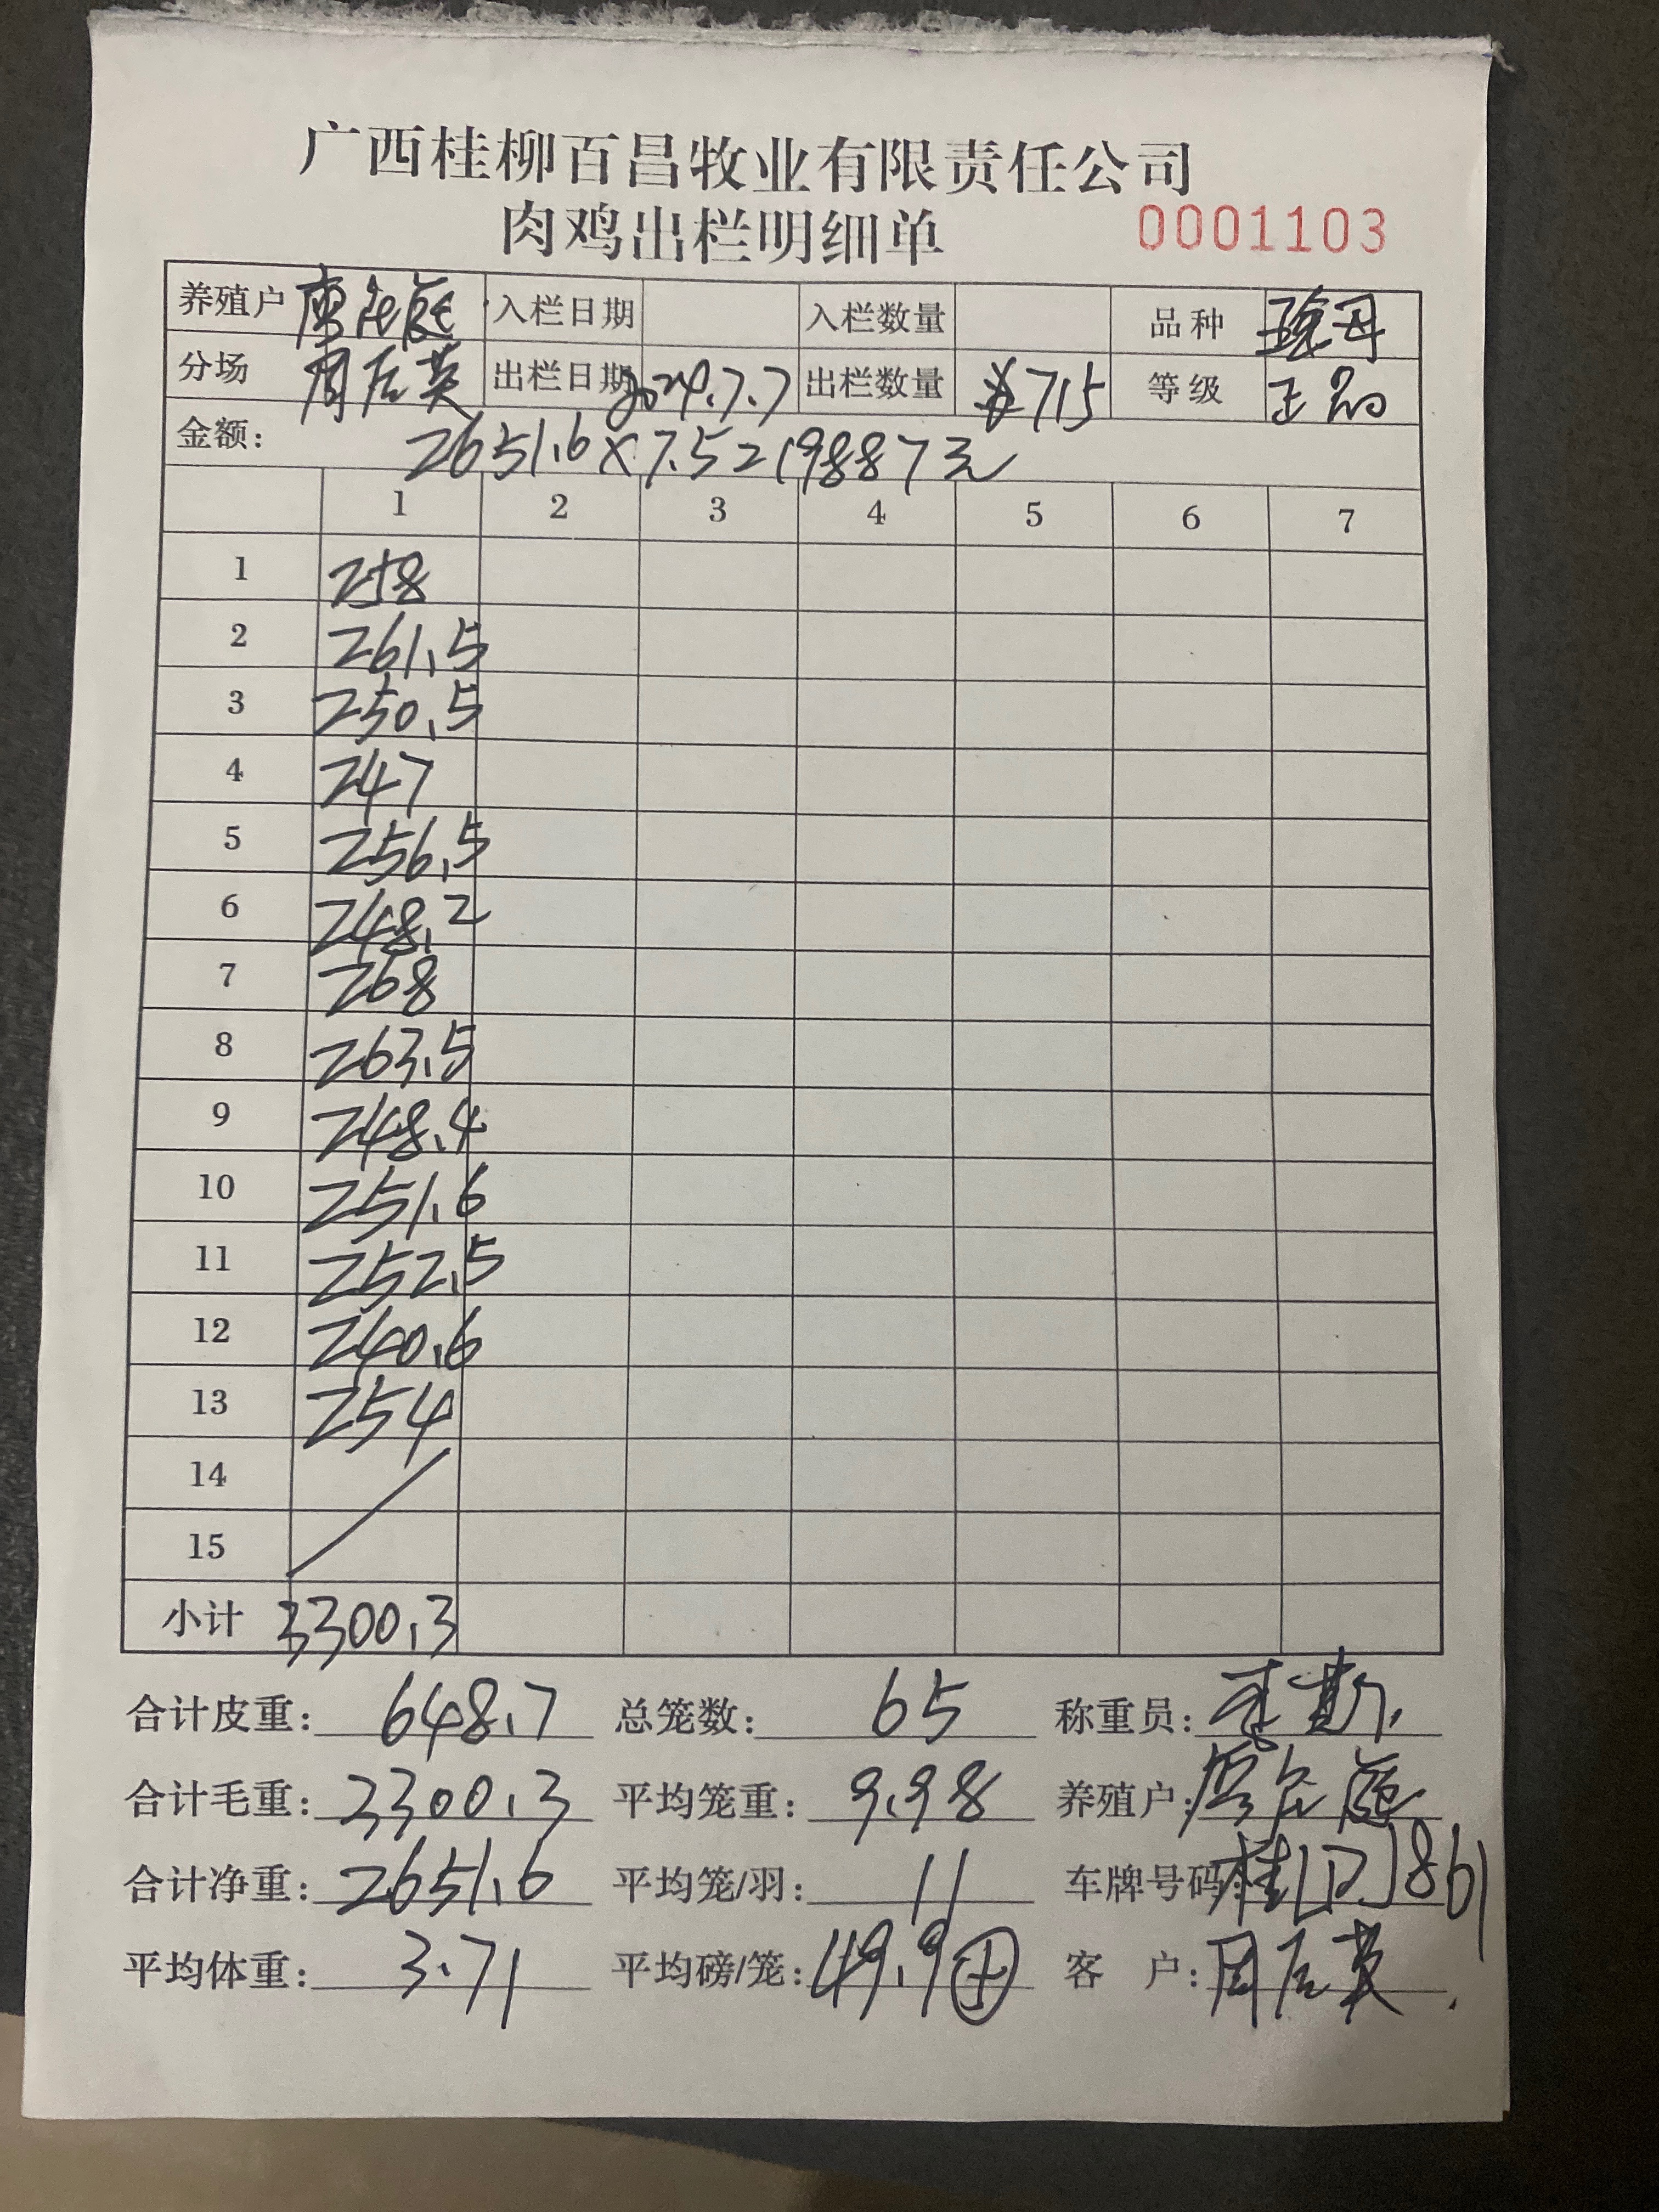 广西桂柳百昌牧业有限责任公司
肉鸡出栏明细单 0001103
养殖户 入栏日期 入栏数量 品种
分场 周左英 出栏日期 2024.7.7 出栏数量 715 等级 正品
金额: 2651.6×7.5=19887元
1 2 3 4 5 6 7
1 258
2 261.5
3 250.5
4 247
5 256.5
6 248.2
7 268
8 263.5
9 248.4
10 251.6
11 252.5
12 240.6
13 254
14
15
小计 3300.3
合计皮重: 648.7 总笼数: 65 称重员:
合计毛重: 3300.3 平均笼重: 9.98 养殖户:
合计净重: 2651.6 平均笼/羽: 11 车牌号码:
平均体重: 3.71 平均磅/笼: 49.9 客户: 周左英